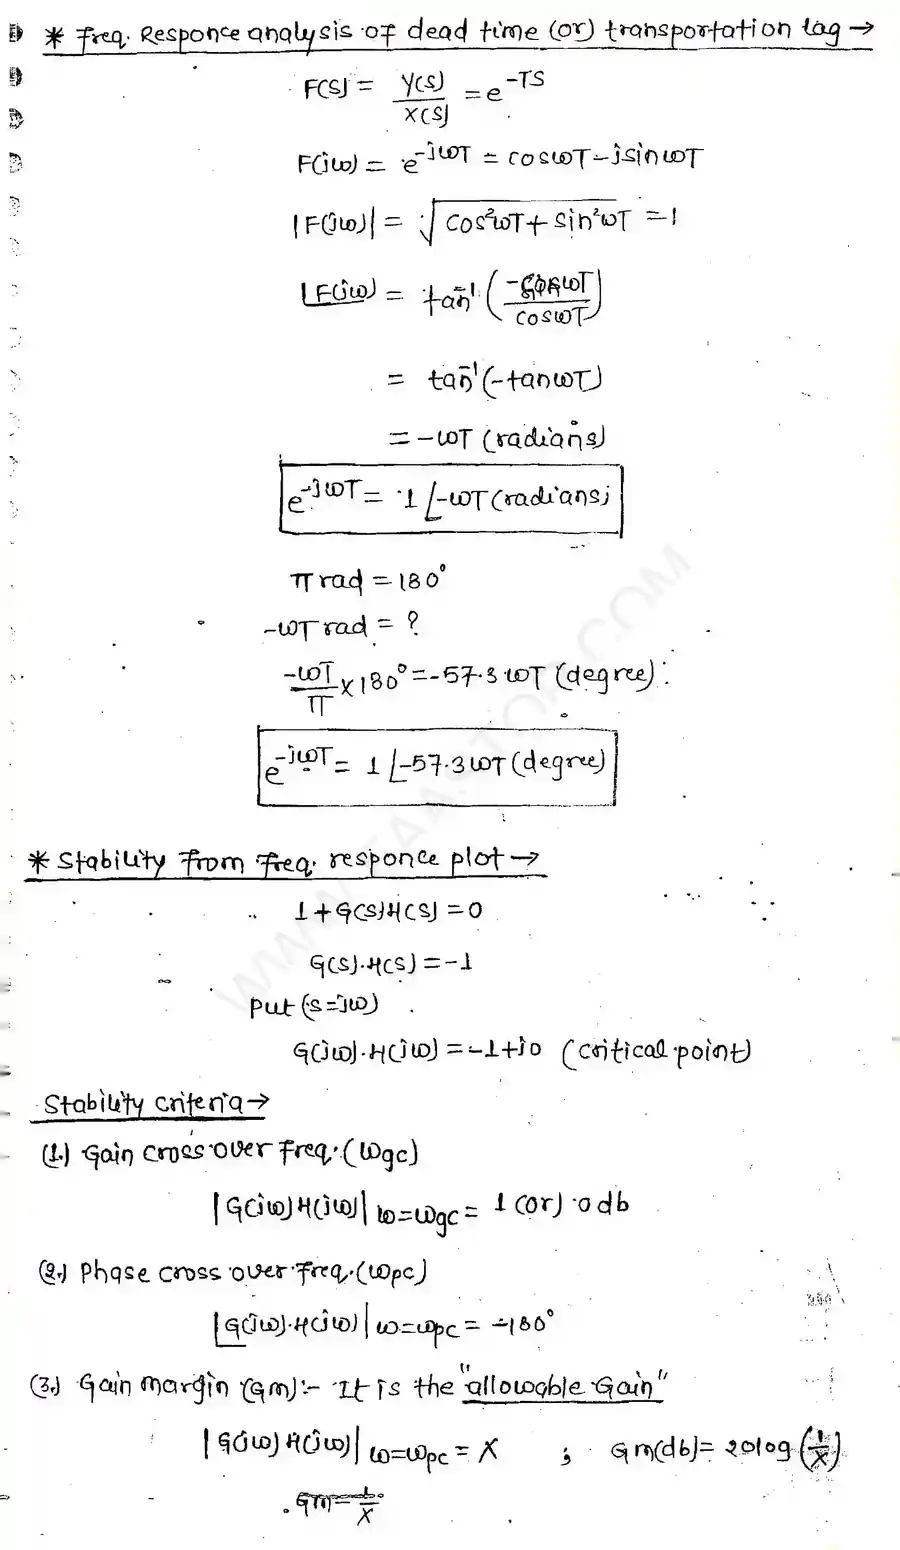 * Freq. Responce analysis of dead time (or) transportation lag →
F(s) = Y(s)/X(s) = e^-TS
F(jω) = e^-jωT = cosωT - jsinωT
|F(jω)| = √(cos²ωT + sin²ωT) = 1
∠F(jω) = tan⁻¹(-sinωT/cosωT)
= tan⁻¹(-tanωT)
= -ωT (radians)
e^-jωT = 1 ∠-ωT (radians)
π rad = 180°
-ωT rad = ?
-ωT/π × 180° = -57.3 ωT (degree)
e^-jωT = 1 ∠-57.3 ωT (degree)
* Stability from freq. responce plot →
1 + G(s)H(s) = 0
G(s).H(s) = -1
Put (s=jω)
G(jω).H(jω) = -1+j0 (critical point)
Stability criteria →
(1.) Gain cross over freq. (ωgc)
|G(jω)H(jω)| ω=ωgc = 1 (or) 0 db
(2.) Phase cross over freq. (ωpc)
∠G(jω).H(jω)| ω=ωpc = -180°
(3.) Gain margin (Gm):- It is the "allowable Gain"
|G(jω)H(jω)| ω=ωpc = X ; Gm(db) = 20log(1/X)
Gm = 1/X